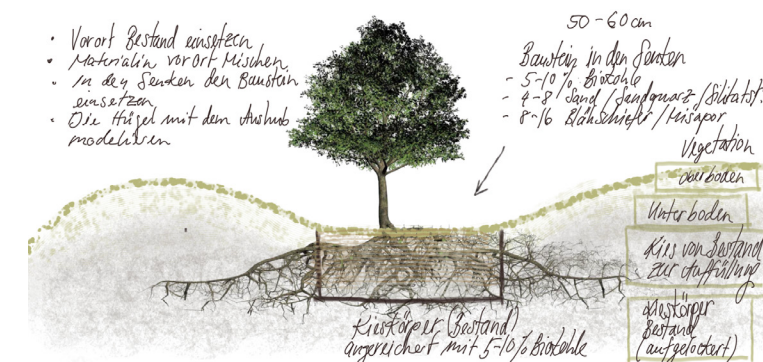 • Vorort Bestand einsetzen
• Materialin vorort Mischen
• In den Senken den Baustein
einsetzen
• Die Hügel mit dem Aushub
modelieren
50-60 cm
Baustein in den Senken
- 5-10% Biokohle
- 4-8 Sand / Sandquarz /
- 8-16 Blähschiefer / Misapor
Vegetation
Oberboden
Unterboden
Kies von Bestand
zur Auffüllung
Kieskörper
Bestand
(aufgelockert)
Kieskörper (Bestand)
angereichert mit 5-10% Biokohle